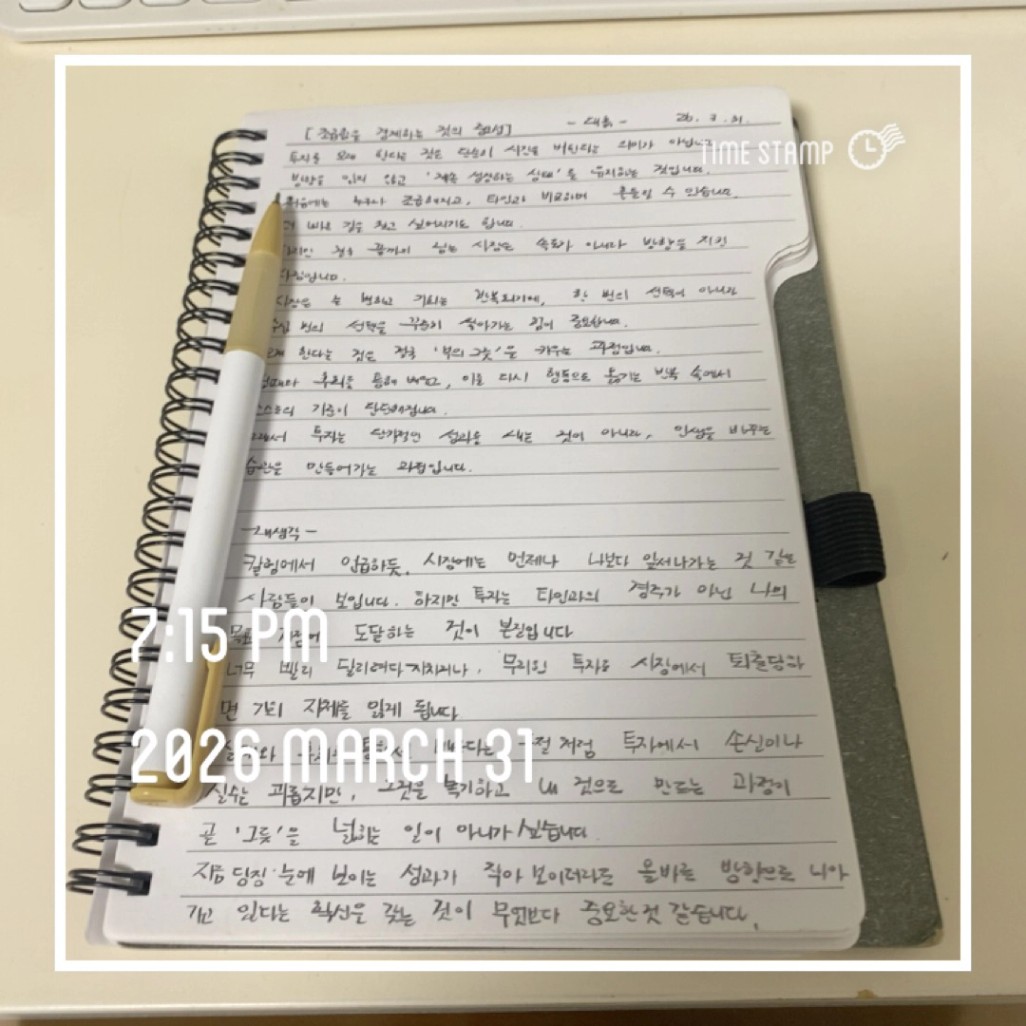 [조급함을 경계하는 것의 중요성] - 26. 3. 31.
TIME STAMP
투자를 오래 한다는 것은 단순히 시간을 버틴다는 의미가 아닙니다
방향을 잃지 않고 '계속 성장하는 상태'를 유지하는 것입니다.
처음에는 누구나 조급해지고, 타인과 비교하며 흔들릴 수 있습니다.
더 빠른 길을 찾고 싶어지기도 합니다.
하지만 결국 끝까지 남는 사람은 속도가 아니라 방향을 지킨
사람입니다.
시장은 늘 변하고 기회는 반복되기에, 한 번의 선택이 아니라
번의 선택을 꾸준히 쌓아가는 힘이 중요합니다.
오래 한다는 것은 결국 '부의 그릇'을 키우는 과정입니다.
복기를 통해 배우고, 이를 다시 행동으로 옮기는 반복 속에서
스스로의 기준이 단단해집니다.
그래서 투자는 단기적인 성과를 내는 것이 아니라, 인생을 바꾸는
습관을 만들어가는 과정입니다.
-내생각-
칼럼에서 언급하듯, 시장에는 언제나 나보다 앞서나가는 것 같은
사람들이 보입니다. 하지만 투자는 타인과의 경주가 아닌 나의
목표 지점에 도달하는 것이 본질입니다
7:15 PM
너무 빨리 달리려다 지치거나, 무리한 투자로 시장에서 퇴출당하
면 기회 자체를 잃게 됩니다.
구절처럼 투자에서 손실이나
2026 MARCH 31
실수는 괴롭지만, 그것을 복기하고 내 것으로 만드는 과정이
곧 '그릇'을 넓히는 일이 아닌가 싶습니다.
지금 당장 눈에 보이는 성과가 작아 보이더라도 올바른 방향으로 나아
가고 있다는 확신을 갖는 것이 무엇보다 중요한 것 같습니다.